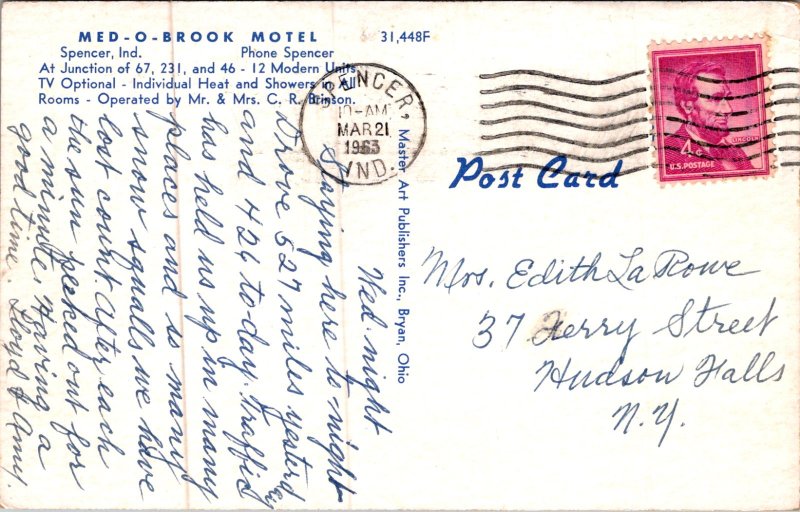 MED-O-BROOK MOTEL
31,448F
Spencer, Ind. Phone Spencer
At Junction of 67, 231, and 46 - 12 Modern Units
TV Optional - Individual Heat and Showers in All
Rooms - Operated by Mr. & Mrs. C. R. Brinson.
SPENCER,
10-AM
MAR 21
1963
IND.
4¢
LINCOLN
U.S. POSTAGE
Post Card
Master Art Publishers Inc., Bryan, Ohio
Wed. night
Staying here to-night
Drove 527 miles yesterday
and 424 to-day. Traffic
has held us up in many
places and so many
snow squalls we have
lost count. After each
the sun peeked out for
a minute. Having a
good time. Lloyd & Amy.
Mrs. Edith LaRowe
37 Ferry Street
Hudson Falls
N.Y.